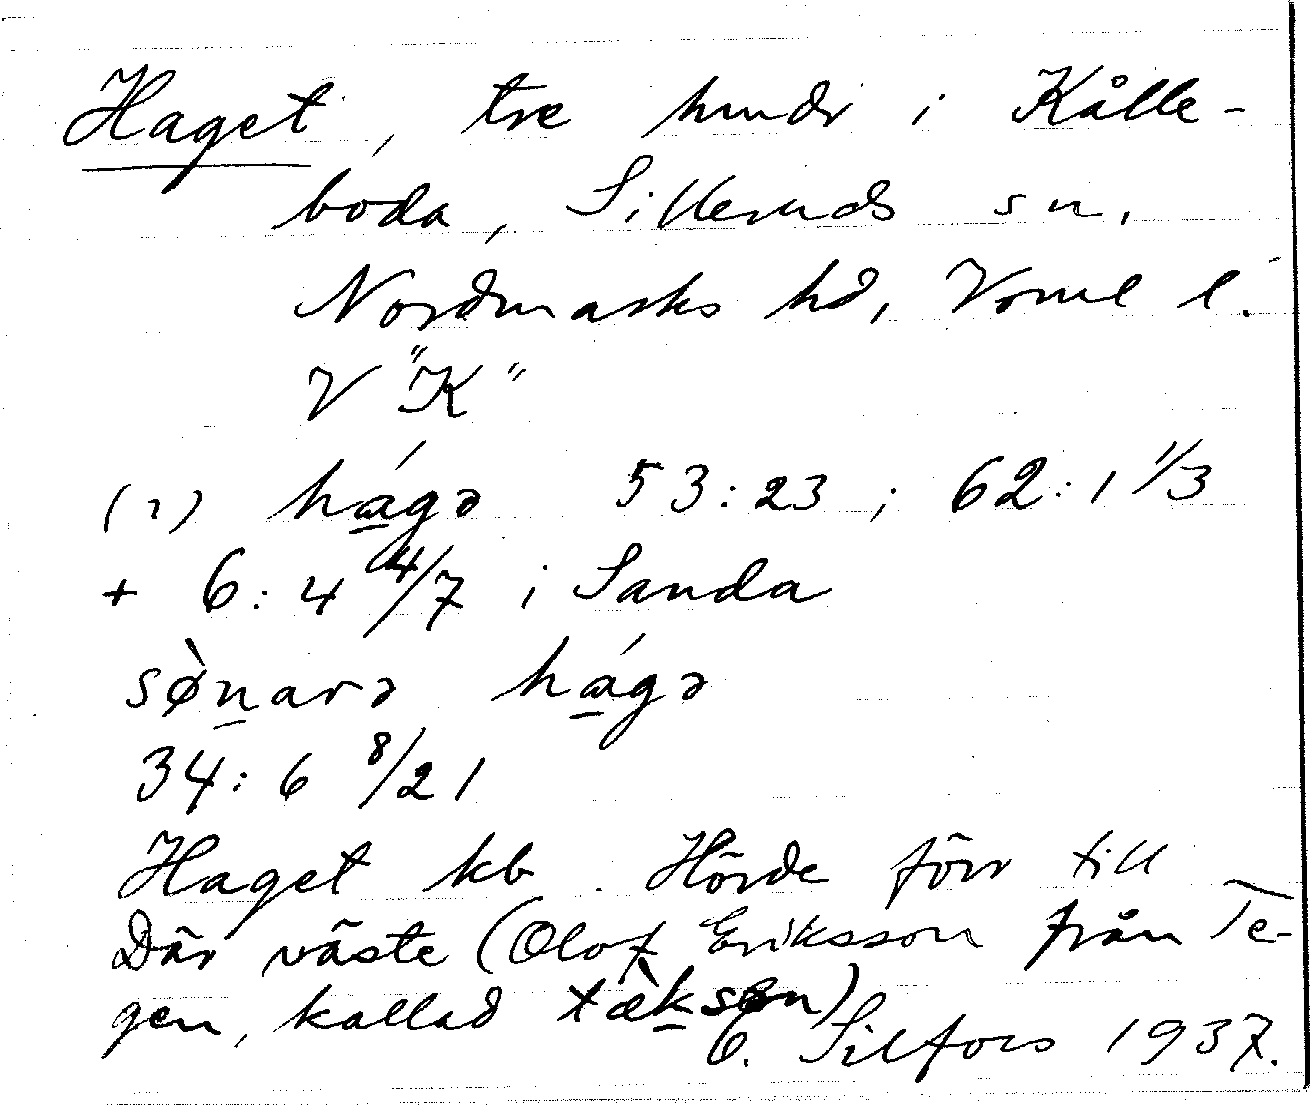 Haget, tre hmdr i Kålle-
boda, Silleruds sn,
Nordmarks hd, Verml l.
V "K"
(1) hágə 53:23 ; 62:1 1/3
+ 6:4 4/7 i Sanda
sø̀narə hágə
34:6 8/21
Haget kb. Hörde förr till
Där väste (Olof Eriksson från Te-
gen, kallad
Silfors 1937.